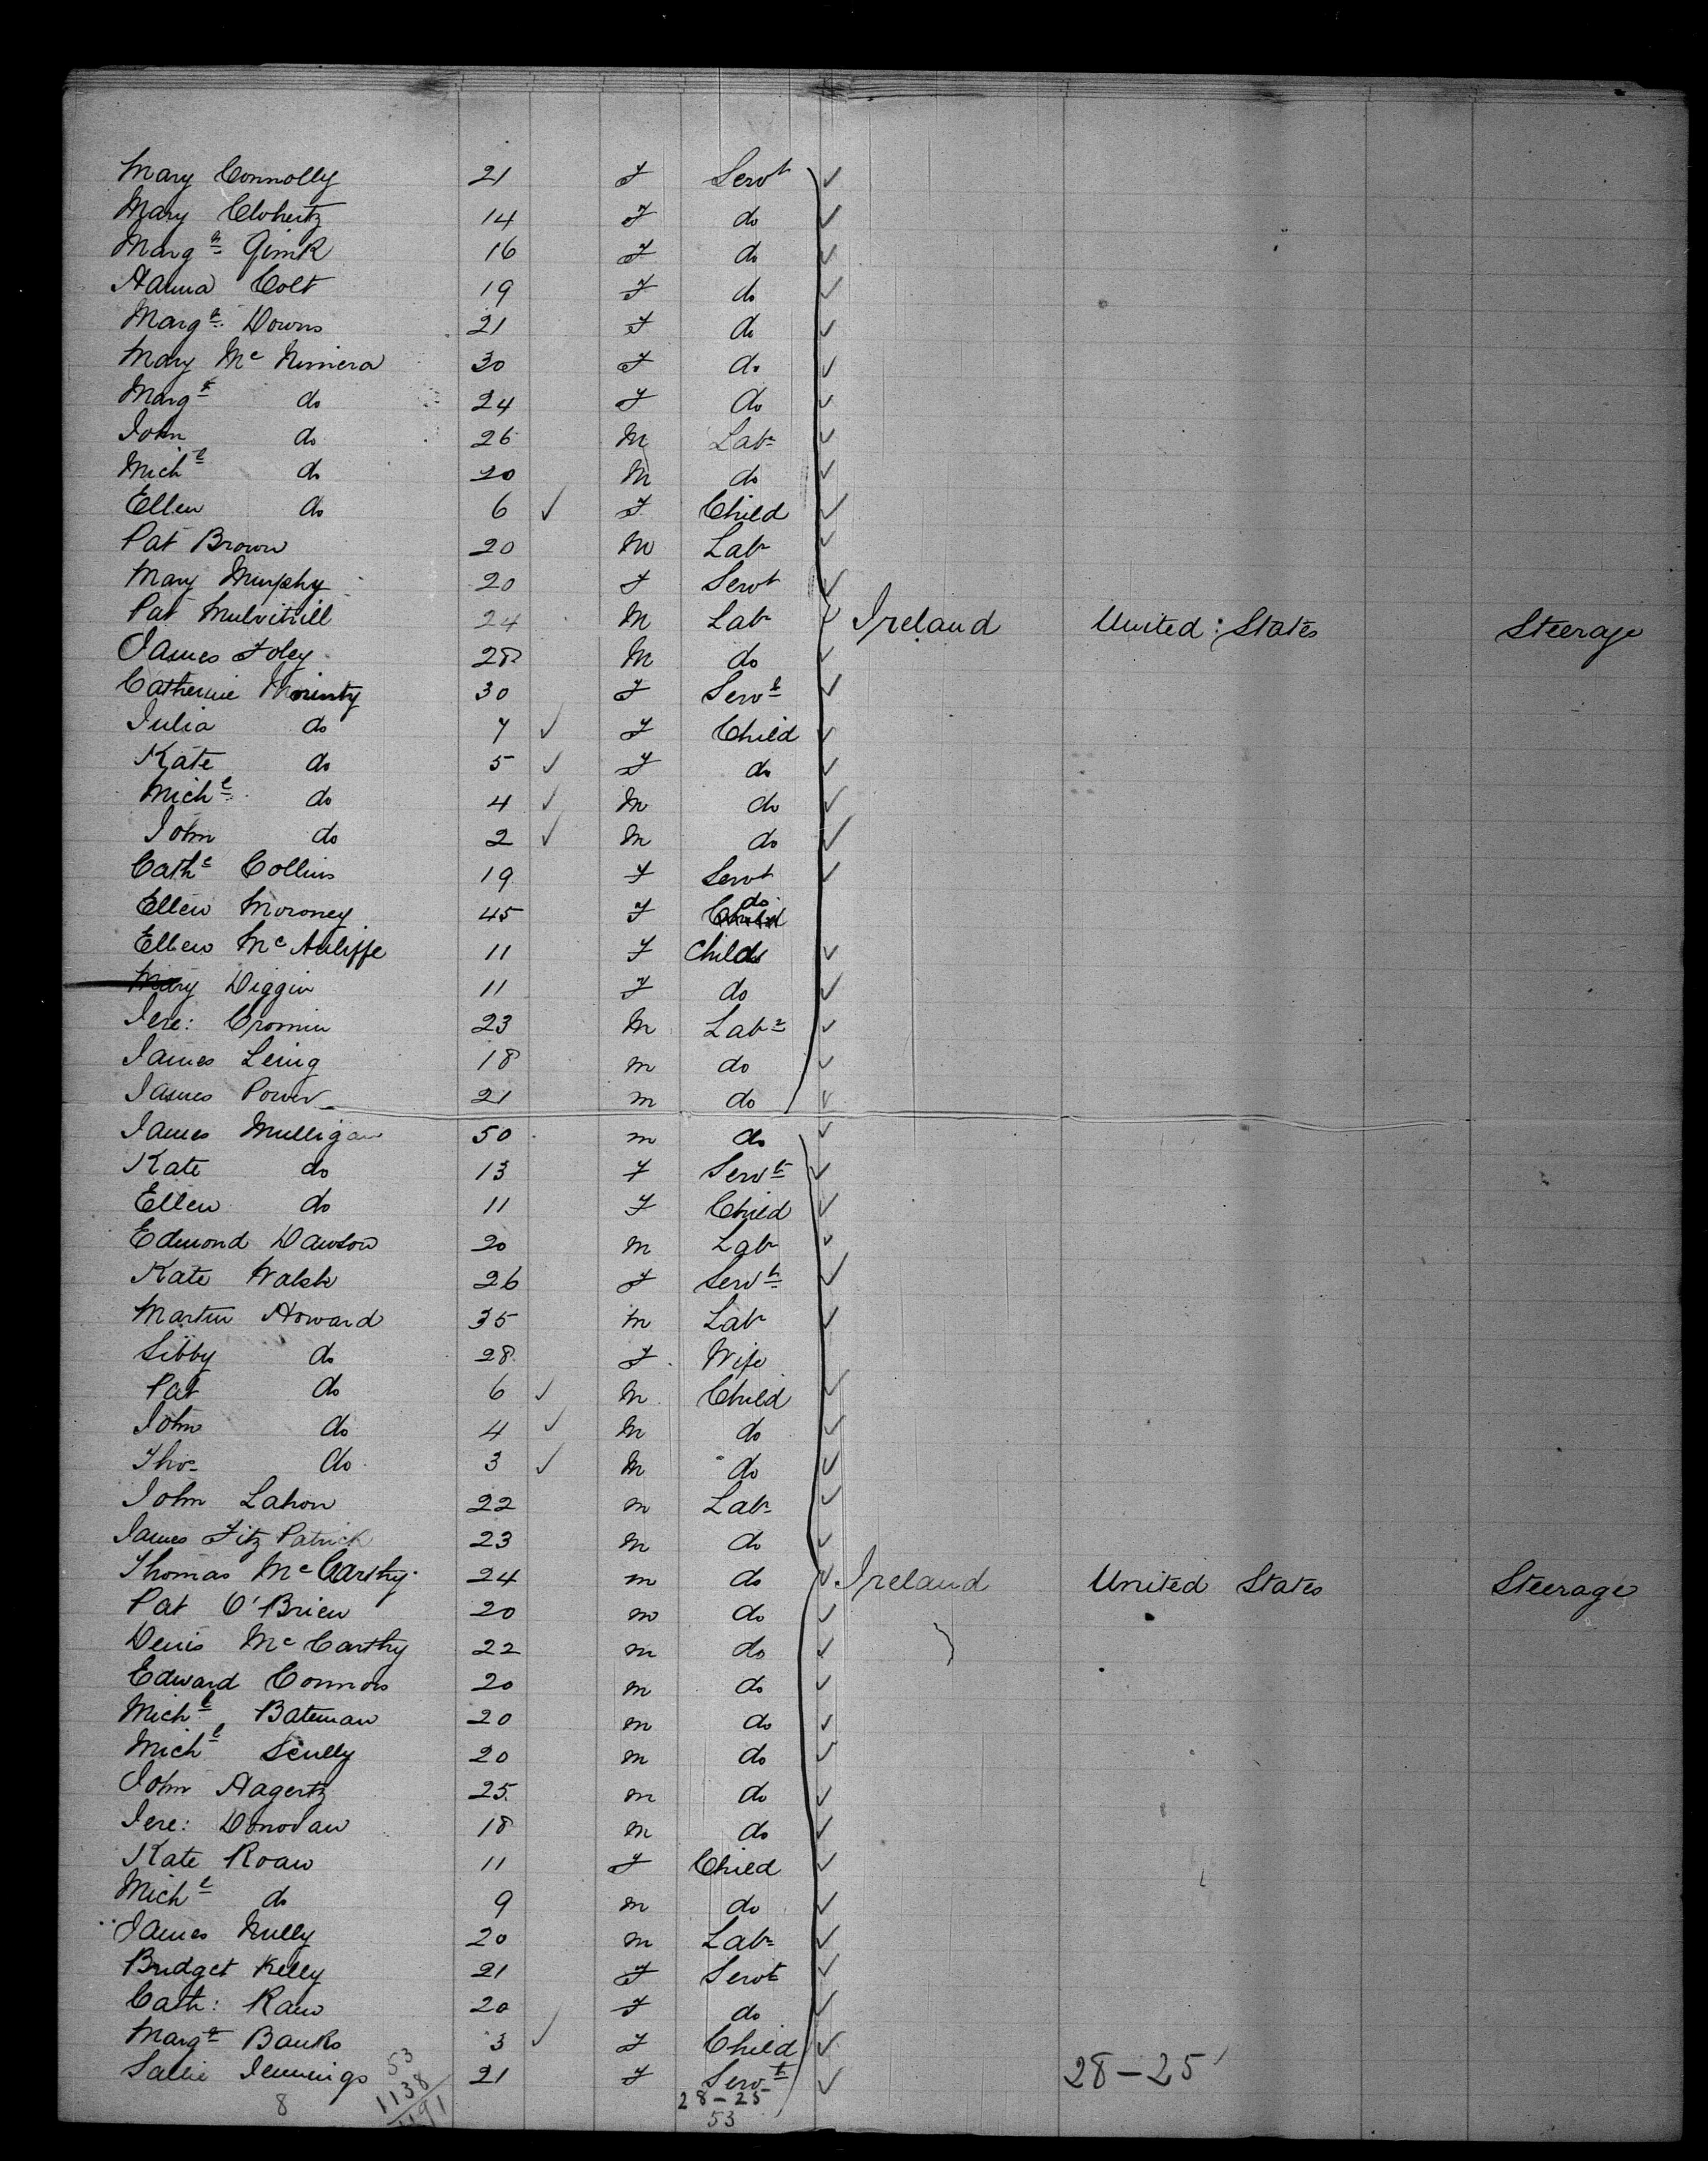 Mary Connolly 21 F Servt
Mary Clohertz 14 F do
Margt 16 F do
Hanna Colt 19 F do
Margt Downs 21 F do
Mary Mc Nimera 30 F do
Margt do 24 F do
John do 26 M Labr
Michl do 20 M do
Ellen do 6 ✓ F Child
Pat Brown 20 M Labr
Mary Murphy 20 F Servt
Pat Mulvihill 24 M Labr Ireland United States Steerage
James Foley 28 M do
Catherine 30 F Servt
Julia do 7 ✓ F Child
Kate do 5 ✓ F do
Michl do 4 ✓ M do
John do 2 ✓ M do
Cathe Collins 19 F Servt
Ellen Moroney 45 F do
Ellen Mc Auliffe 11 F Child
Mary Diggin 11 F do
Jere: Cromin 23 M Labr
James 18 M do
James Power 21 M do
James Mulligan 50 M do
Kate do 13 F Servt
Ellen do 11 F Child
Edmond Dawson 20 M Labr
Kate Walsh 26 F Servt
Martin Howard 35 M Labr
Sibby do 28 F Wife
Pat do 6 ✓ M Child
John do 4 ✓ M do
Thos do 3 ✓ M do
John Lahow 22 M Labr
James Fitz Patrick 23 M do
Thomas Mc Carthy 24 M do Ireland United States Steerage
Pat O'Brien 20 M do
Denis Mc Carthy 22 M do
Edward Connors 20 M do
Michl Bateman 20 M do
Michl Scully 20 M do
John Hagertz 25 M do
Jere: Donovan 18 M do
Kate Roan 11 F Child
Michl do 9 M do
James Nully 20 M Labr
Bridget Kelly 21 F Servt
Cath: Raw 20 F do
Margt Banks 3 ✓ F Child
Sallie Jennings 21 F Servt 28-25
53
1138
1191
8
28-25
53